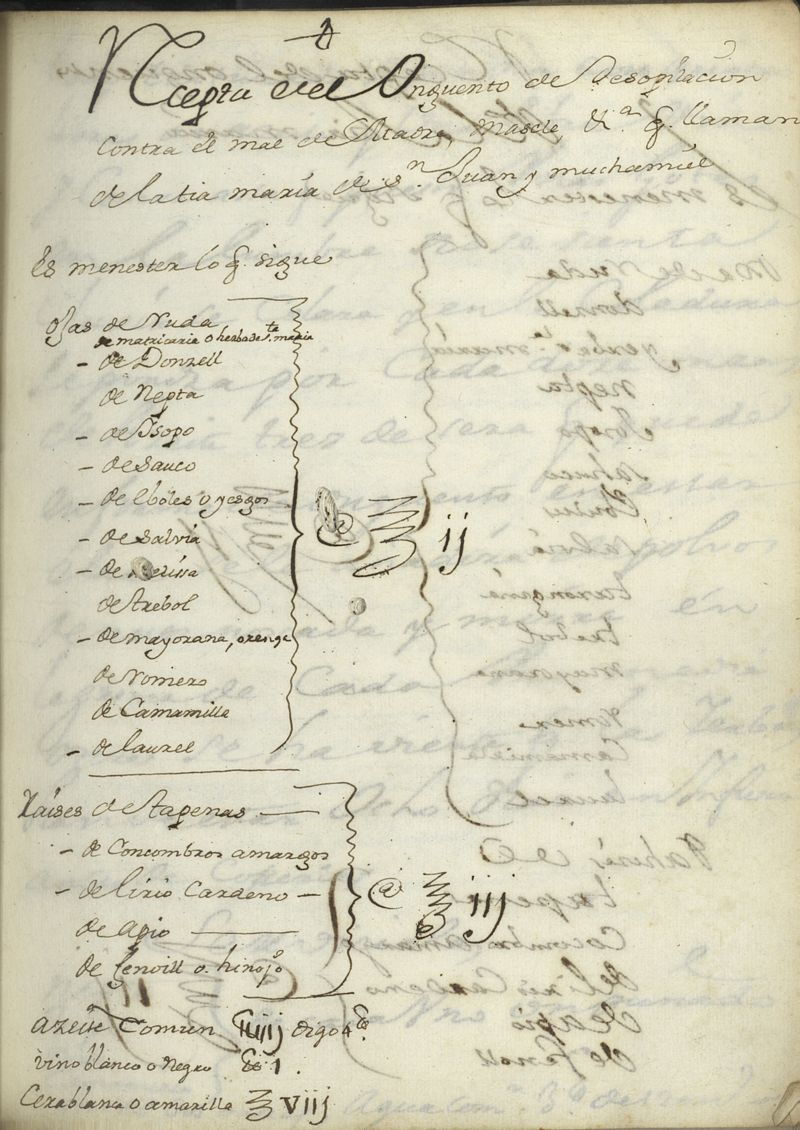 Recepta del Onguento de Desopilacion
contra el mal de Madre, Mascle, &.ª q. llaman
de la tia maria de S.n Juan y muchamiel
Es menester lo q. sigue
ojas de Ruda
de matricaria o herba de s.ta maria
- de Donzell
de Nepta
- de Isopo
- de Sauco
- de eboles o yesgos
- de Salvia
- de Melissa
de trebol
- de mayorana, orenga
de Romero
de Camamilla
- de laurel
@ ℥ ij
Raises de Tapenas
- de Concombros amargos
- de lirio Cardeno
de apio
de fenoill o hinojo
@ ℥ iij
azeite Comun ℔ iiij digo 4 ℔
vino blanco o negro ℔ 1.
Cera blanca o amarilla ℥ viij